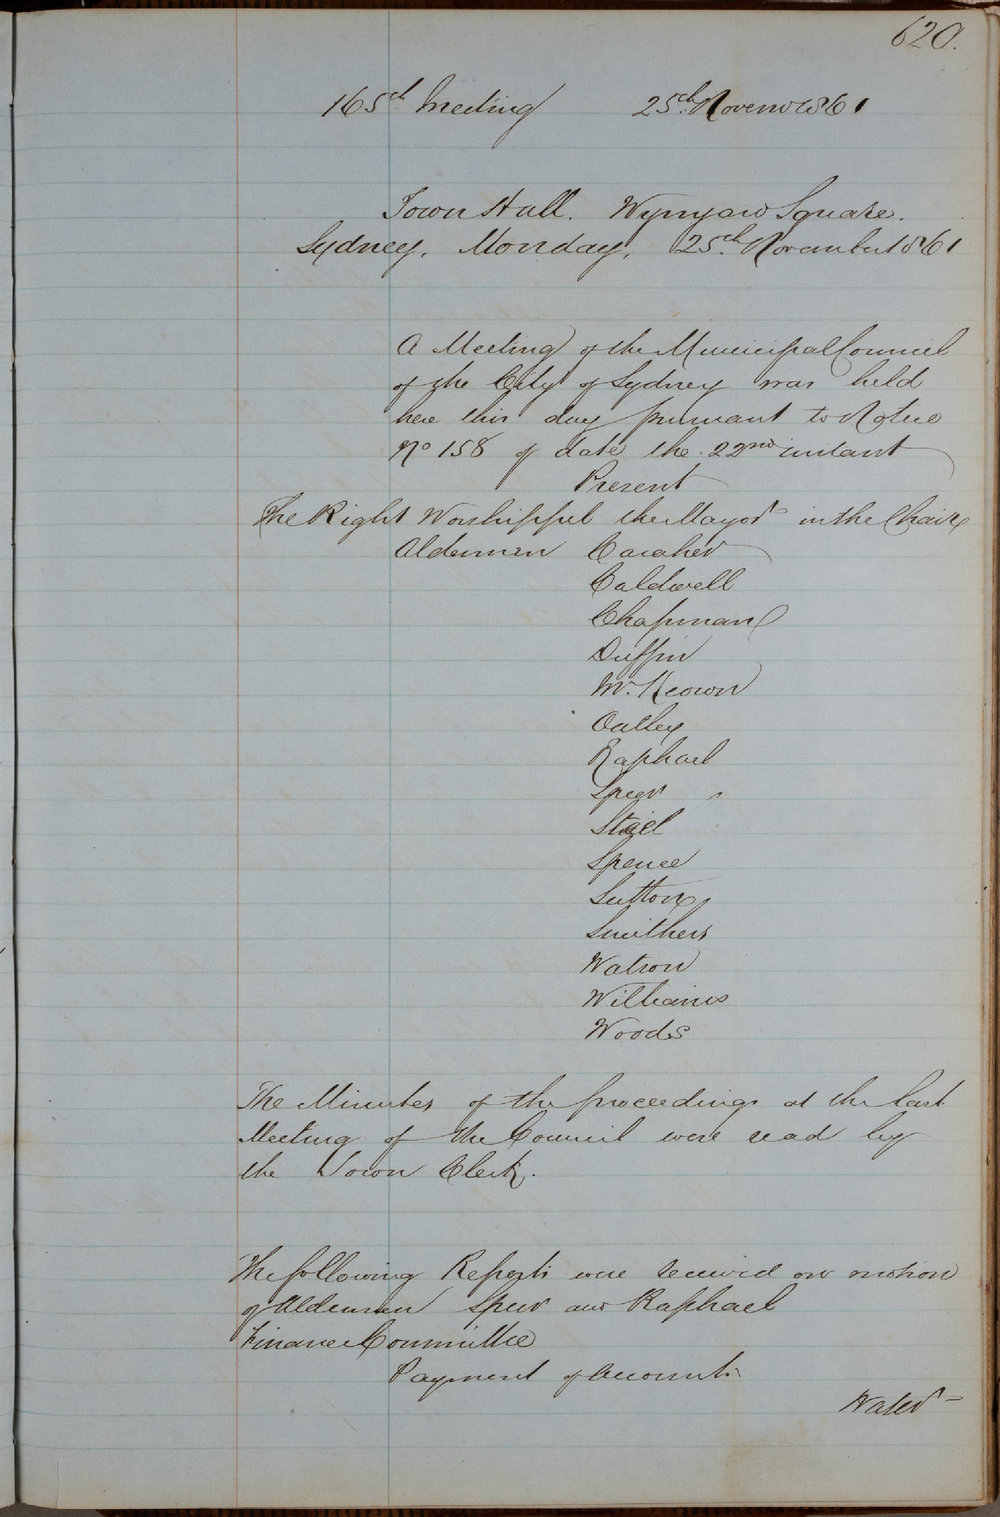 620.
165th Meeting 25th Novem 1861
Town Hall. Wynyard Square.
Sydney, Monday, 25th November 1861
A Meeting of the Municipal Council
of the City of Sydney was held
here this day pursuant to Notice
No 158 of date the 22nd instant
Present
The Right Worshipful the Mayor in the Chair
Aldermen Caraher
Caldwell
Chapman
Duffin
Mc. Keown
Oatley
Raphael
Speer
Spence
Sutton
Smithers
Watson
Williams
Woods
The Minutes of the proceedings at the last
Meeting of the Council were read by
the Town Clerk.
The following Reports were received on motion
of Aldermen Speer and Raphael
Finance Committee
Payment of Accounts
Water